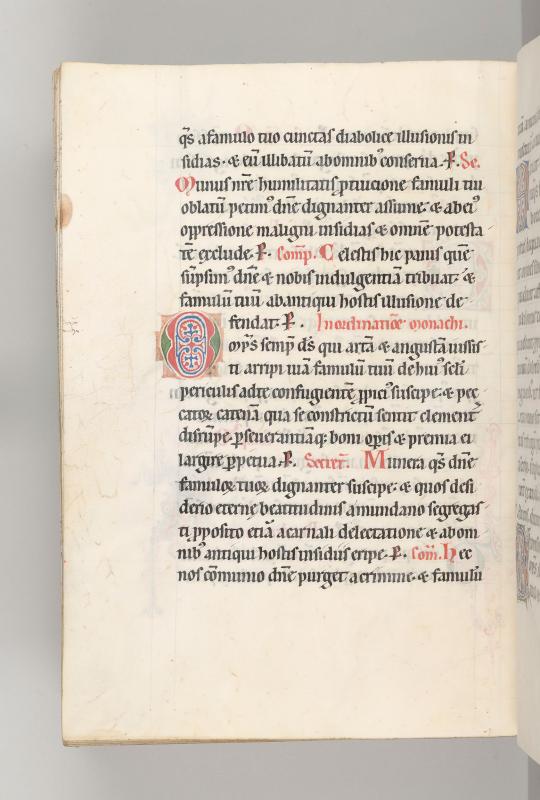 q̄s afamulo tuo cunctas diabolice illusionis in
sidias · & eū illibatū abomnib⁹ conserua . P̶ . Se.
Munus nr̄e humilitatis ꝓtuicione famuli tui
oblatū petim⁹ dn̄e dignanter assume · & abei⁹
oppressione maligni insidias & omnē potesta
tē exclude . P̶ . Com̄p. Celestis hic panis quē
sūpsim⁹ dn̄e & nobis indulgentiā tribuat · &
famulū tuū abantiqui hostis illusione de
fendat . P̶ . In ordinatiōe monachi .
Omp̄s semp̄ d̄s qui artā & angustā iussis
ti arripi uiā famulū tuū de hui⁹ scl̄i
periculis adte confugientē ꝓpici⁹ suscipe · & pec
catoꝝ catenā qua se constrictū sentit clement̄
disrūpe · ꝑseuerantiā q; boni op̄is & premia ei
largire ꝑpetua . P̶ . Secret̄. Munera q̄s dn̄e
famuloꝝ tuoꝝ dignanter suscipe · & quos desi
derio eterne beatitudinis amundano segregas
ti ꝓposito etiā acarnali delectatione & abom
nib⁹ antiqui hostis insidiis eripe . P̶ . Com̄. Hec
nos cōmunio dn̄e purget acrimine · & famulū